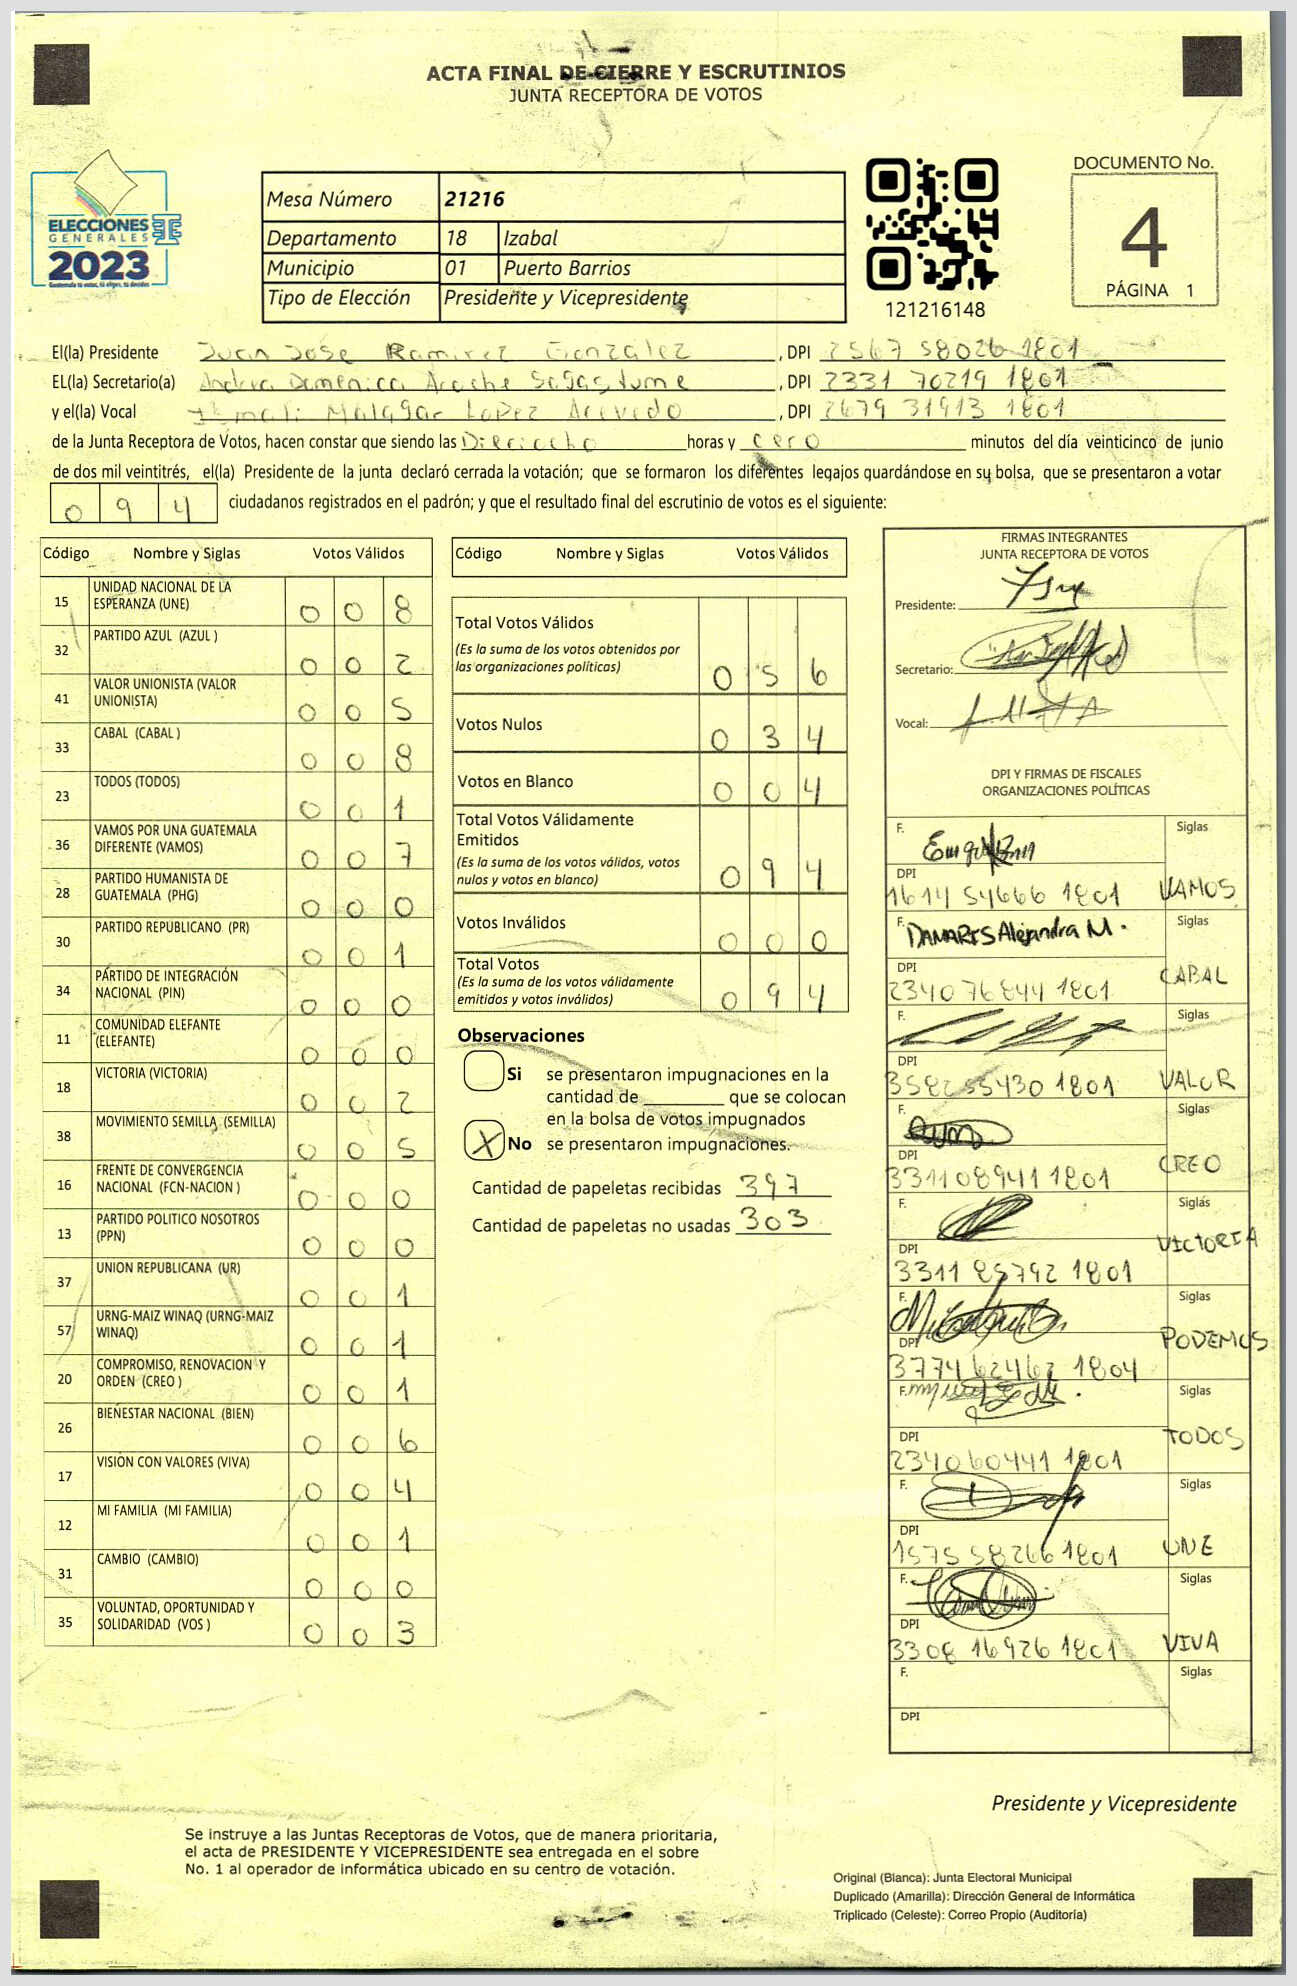 ACTA FINAL DE CIERRE Y ESCRUTINIOS
JUNTA RECEPTORA DE VOTOS
ELECCIONES
GENERALES
2023
Mesa Número 21216
Departamento 18 Izabal
Municipio 01 Puerto Barrios
Tipo de Elección Presidente y Vicepresidente
121216148
DOCUMENTO No.
4
PÁGINA 1
El(la) Presidente Juan Jose Ramirez Gonzalez , DPI 2567 58026 1801
EL(la) Secretario(a) Andrea Domenica Arache Sagastume , DPI 2331 70219 1801
y el(la) Vocal Malagar Lopez Acevedo , DPI 2679 31913 1801
de la Junta Receptora de Votos, hacen constar que siendo las Dieciocho horas y cero minutos del día veinticinco de junio
de dos mil veintitrés, el(la) Presidente de la junta declaró cerrada la votación; que se formaron los diferentes legajos guardándose en su bolsa, que se presentaron a votar
0 9 4 ciudadanos registrados en el padrón; y que el resultado final del escrutinio de votos es el siguiente:
Código Nombre y Siglas Votos Válidos
15 UNIDAD NACIONAL DE LA
ESPERANZA (UNE) 0 0 8
32 PARTIDO AZUL (AZUL ) 0 0 2
41 VALOR UNIONISTA (VALOR
UNIONISTA) 0 0 5
33 CABAL (CABAL ) 0 0 8
23 TODOS (TODOS) 0 0 1
36 VAMOS POR UNA GUATEMALA
DIFERENTE (VAMOS) 0 0 7
28 PARTIDO HUMANISTA DE
GUATEMALA (PHG) 0 0 0
30 PARTIDO REPUBLICANO (PR) 0 0 1
34 PARTIDO DE INTEGRACIÓN
NACIONAL (PIN) 0 0 0
11 COMUNIDAD ELEFANTE
(ELEFANTE) 0 0 0
18 VICTORIA (VICTORIA) 0 0 2
38 MOVIMIENTO SEMILLA (SEMILLA) 0 0 5
16 FRENTE DE CONVERGENCIA
NACIONAL (FCN-NACION ) 0 0 0
13 PARTIDO POLITICO NOSOTROS
(PPN) 0 0 0
37 UNION REPUBLICANA (UR) 0 0 1
57 URNG-MAIZ WINAQ (URNG-MAIZ
WINAQ) 0 0 1
20 COMPROMISO, RENOVACION Y
ORDEN (CREO ) 0 0 1
26 BIENESTAR NACIONAL (BIEN) 0 0 6
17 VISIÓN CON VALORES (VIVA) 0 0 4
12 MI FAMILIA (MI FAMILIA) 0 0 1
31 CAMBIO (CAMBIO) 0 0 0
35 VOLUNTAD, OPORTUNIDAD Y
SOLIDARIDAD (VOS ) 0 0 3
Código Nombre y Siglas Votos Válidos
Total Votos Válidos
(Es la suma de los votos obtenidos por
las organizaciones políticas) 0 5 6
Votos Nulos 0 3 4
Votos en Blanco 0 0 4
Total Votos Válidamente
Emitidos
(Es la suma de los votos válidos, votos
nulos y votos en blanco) 0 9 4
Votos Inválidos 0 0 0
Total Votos
(Es la suma de los votos válidamente
emitidos y votos inválidos) 0 9 4
Observaciones
Si se presentaron impugnaciones en la
cantidad de ________ que se colocan
en la bolsa de votos impugnados
X No se presentaron impugnaciones.
Cantidad de papeletas recibidas 397
Cantidad de papeletas no usadas 303
FIRMAS INTEGRANTES
JUNTA RECEPTORA DE VOTOS
Presidente:
Secretario:
Vocal:
DPI Y FIRMAS DE FISCALES
ORGANIZACIONES POLÍTICAS
F. Siglas
DPI
1614 54666 1801 VAMOS
F. DAMARIS Alejandra M. Siglas
DPI
2340 76844 1801 CABAL
F. Siglas
DPI
3582 55430 1801 VALOR
F. Siglas
DPI
3311 08941 1801 CREO
F. Siglas
DPI
3311 85792 1801 VICTORIA
F. Siglas
DPI
3774 62462 1804 PODEMOS
F. Siglas
DPI
2340 60441 1801 TODOS
F. Siglas
DPI
1575 58266 1801 UNE
F. Siglas
DPI
3308 16926 1801 VIVA
F. Siglas
DPI
Presidente y Vicepresidente
Se instruye a las Juntas Receptoras de Votos, que de manera prioritaria,
el acta de PRESIDENTE Y VICEPRESIDENTE sea entregada en el sobre
No. 1 al operador de informática ubicado en su centro de votación.
Original (Blanca): Junta Electoral Municipal
Duplicado (Amarilla): Dirección General de Informática
Triplicado (Celeste): Correo Propio (Auditoría)